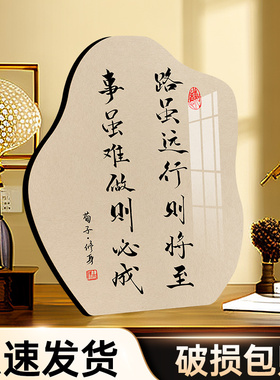 路虽远行则将至
事虽难做则必成
荀子·修身
速发货
破损包